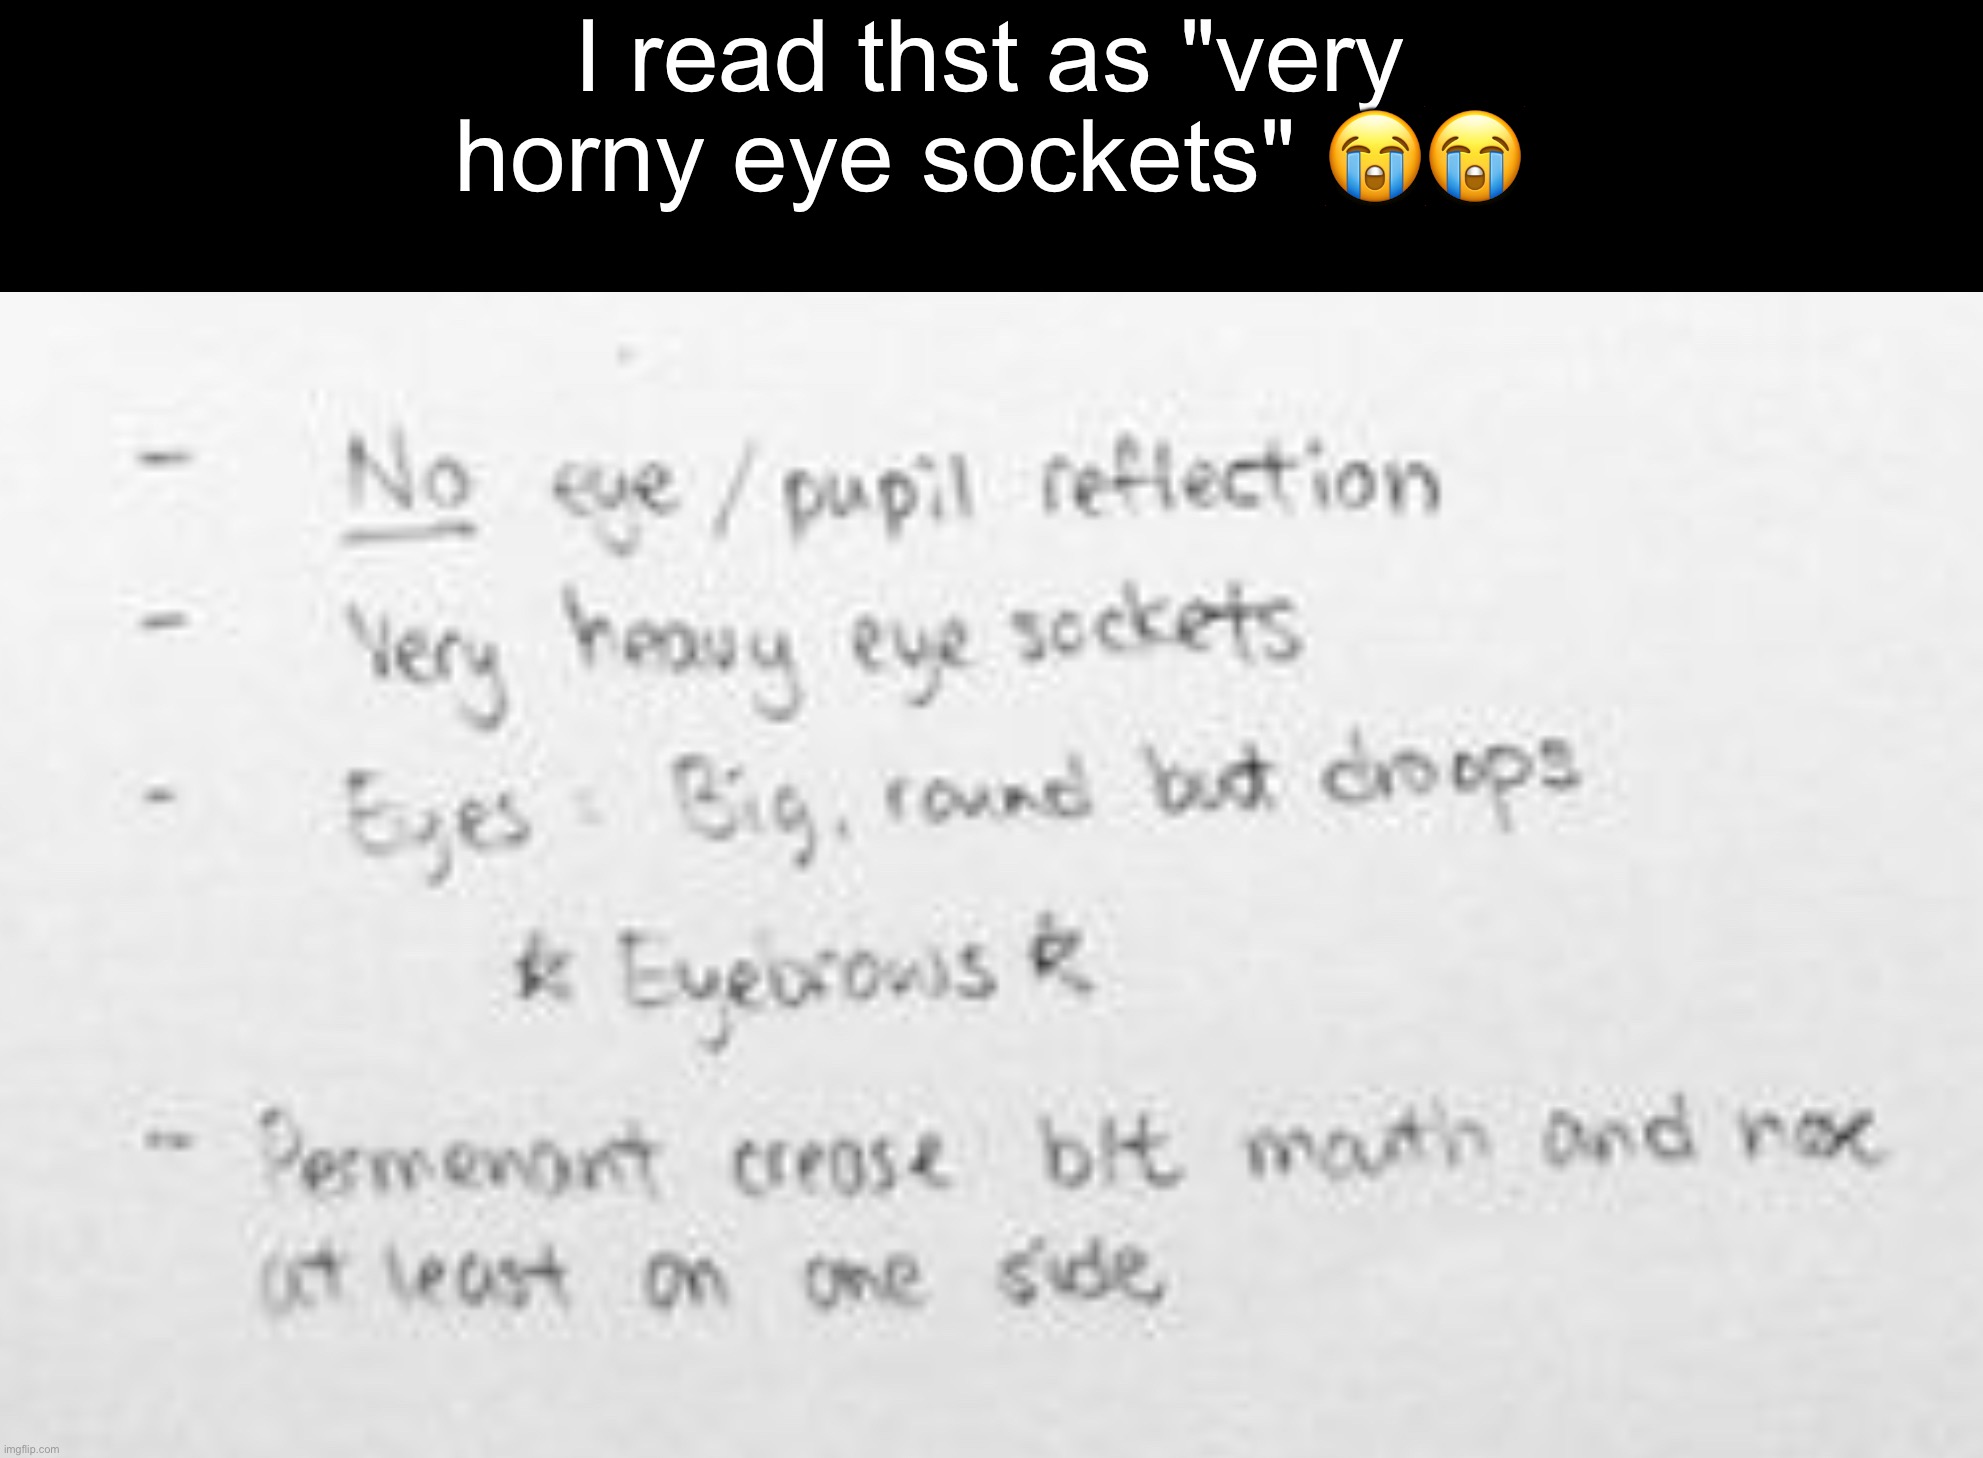 I read thst as "very
horny eye sockets" 😭😭
- No eye / pupil reflection
- Very heavy eye sockets
- Eyes = Big, round but droops
* Eyebrows *
- Permenant crease b/t mouth and nose
at least on one side
imgflip.com